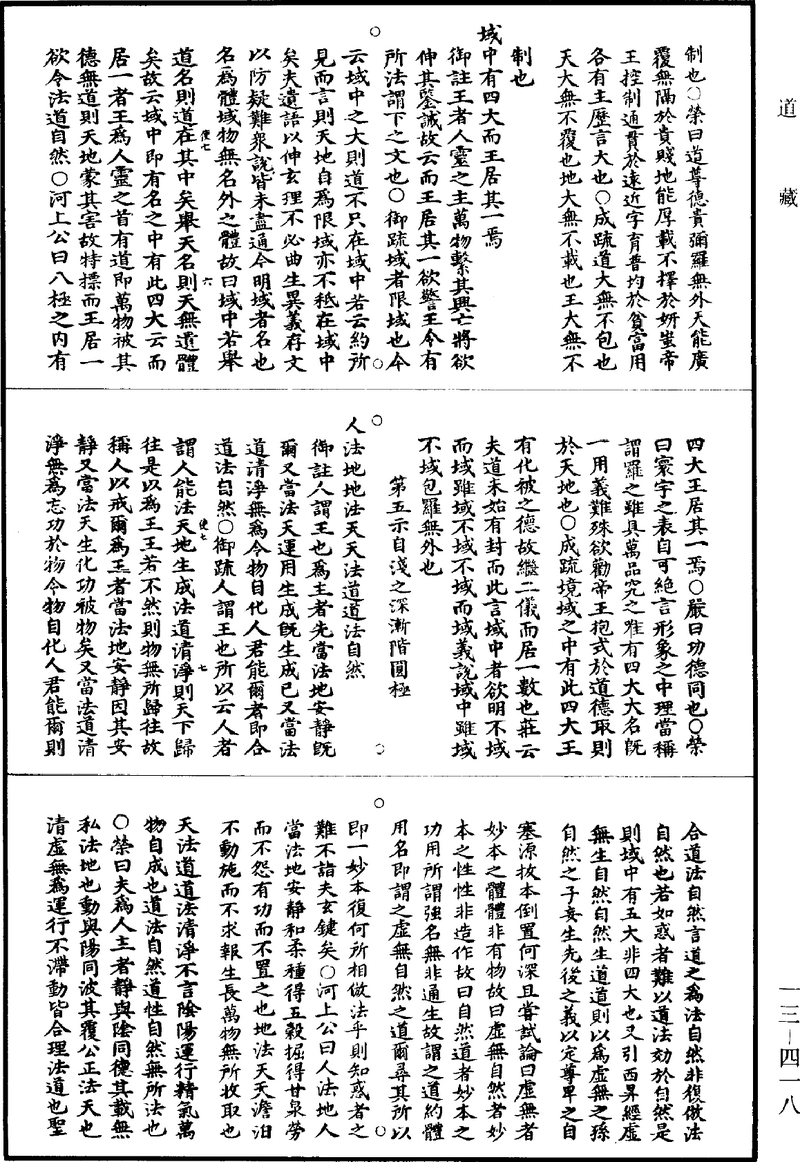 道藏
制也○榮曰道尊德貴彌羅無外天能廣
覆無隔於貴賤地能厚載不擇於妍蚩帝
王控制通貫於遠近字育普均於貧富用
各有主歷言大也○成疏道大無不包也
天大無不覆也地大無不載也王大無不
制也
域中有四大而王居其一焉
御註王者人靈之主萬物繫其興亡將欲
伸其鑒誡故云而王居其一欲警王令有
所法謂下之文也○御疏域者限域也今
云域中之大則道不只在域中若云約所
見而言則天地自為限域亦不秪在域中
矣夫遺語以伸玄理不必曲生異義存文
以防疑難衆說皆未盡通今明域者名也
名為體域物無名外之體故曰域中若舉
道名則道在其中矣舉天名則天無遺體
矣故云域中即有名之中有此四大云而
居一者王為人靈之首有道即萬物被其
德無道則天地蒙其害故特標而王居一
欲令法道自然○河上公曰八極之內有
四大王居其一焉○嚴曰功德同也○榮
曰寰宇之表自可絕言形象之中理當稱
謂羅之雖具萬品究之唯有四大大名旣
一用義難殊欲勸帝王抱式於道德取則
於天地也○成疏境域之中有此四大王
有化被之德故繼二儀而居一數也莊云
夫道未始有封而此言域中者欲明不域
而域雖域不域不域而域義說域中雖域
不域包羅無外也
第五示自淺之深漸階圓極
人法地地法天天法道道法自然
御註人謂王也為主者先當法地安靜旣
爾又當法天運用生成旣生成已又當法
道清淨無為令物自化人君能爾者即合
道法自然○御疏人謂王也所以云人者
謂人能法天地生成法道清淨則天下歸
往是以為王王若不然則物無所歸往故
稱人以戒爾為王者當法地安靜因其安
靜又當法天生化功被物矣又當法道清
淨無為忘功於物令物自化人君能爾則
合道法自然言道之為法自然非復倣法
自然也若如惑者難以道法効於自然是
則域中有五大非四大也又引西昇經虛
無生自然自然生道道則以為虛無之孫
自然之子妄生先後之義以定尊卑之自
塞源拔本倒置何深且嘗試論曰虛無者
妙本之體體非有物故曰虛無自然者妙
本之性性非造作故曰自然道者妙本之
功用所謂強名無非通生故謂之道約體
用名即謂之虛無自然之道爾尋其所以
即一妙本復何所相倣法乎則知惑者之
難不詣夫玄鍵矣○河上公曰人法地人
當法地安靜和柔種得五穀掘得甘泉勞
而不怨有功而不置之也地法天天澹泊
不動施而不求報生長萬物無所收取也
天法道道法清淨不言陰陽運行精氣萬
物自成也道法自然道性自然無所法也
○榮曰夫為人主者靜與陰同德其載無
私法地也動與陽同波其覆公正法天也
清虛無為運行不滯動皆合理法道也聖
一三—四一八